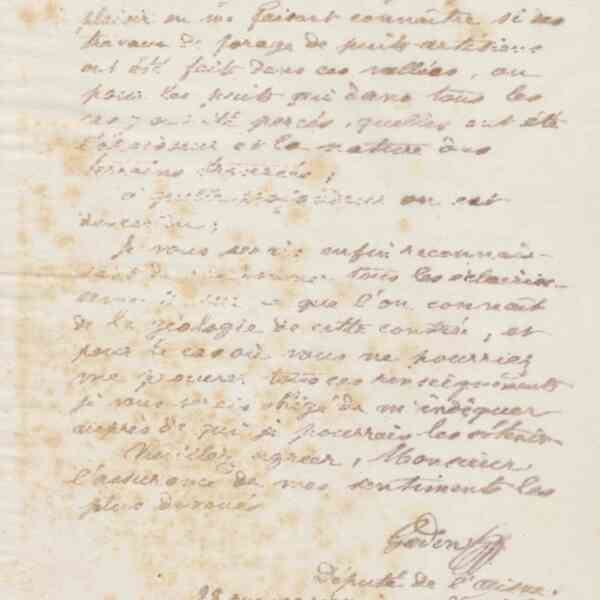 plaisir en me faisant connaître si des
travaux de forage de puits artésiens
ont été faits dans ces vallées, ou
pour les puits qui dans tous les
cas y ont été percés, quelles ont été
l'épaisseur et la nature des
terrains traversés;
à quelle on est
descendu;
Je vous serais enfin reconnais-
sant de me donner tous les éclaircis-
sements sur ce que l'on connaît
de la géologie de cette contrée, et
pour le cas où vous ne pourriez
me procurer tous ces renseignements
je vous serais obligé de m'indiquer
auprès de qui je pourrais les obtenir.
Veuillez agréer, Monsieur,
l'assurance de mes sentiments les
plus dévoués
Godin
Député de l'Aisne.
28